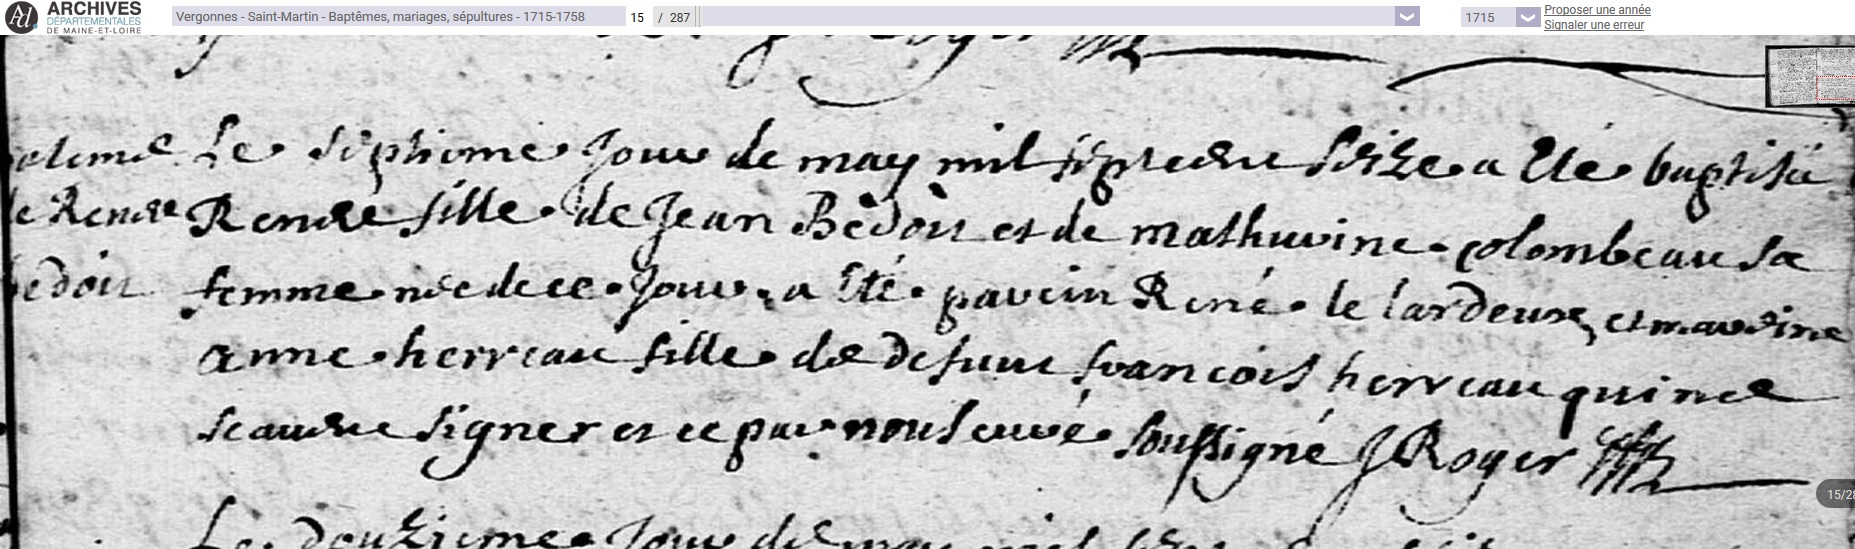 ARCHIVES
DÉPARTEMENTALES
DE MAINE-ET-LOIRE
Vergonnes - Saint-Martin - Baptêmes, mariages, sépultures - 1715-1758
15 / 287
1715
Proposer une année
Signaler une erreur
Le siptieme Jour de may mil sept cens seize a Eté baptisée
Renée fille de Jean Bedoit et de mathurine colombeau sa
femme née de ce Jour, a Eté parein René le lardeux et mareine
anne herreau fille de defunt francois herreau qui ne
scavent signer et ce par nous curé soussigné J Roger
de Renée
bedoit
15/28
Le deuzieme Jour de may mil